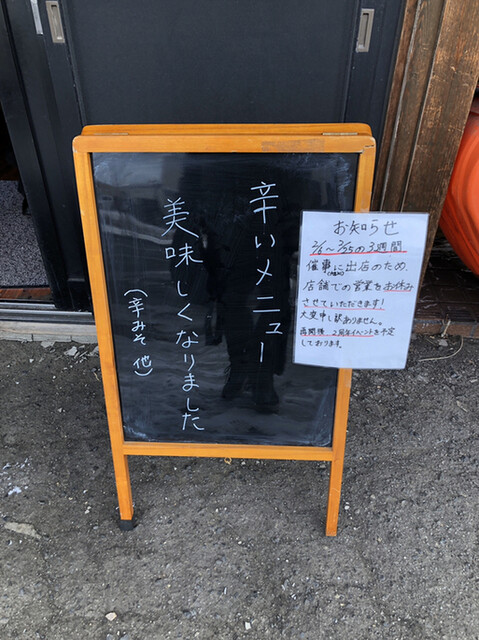 辛いメニュー
美味しくなりました
(辛みそ 他)
お知らせ
2/5～2/25の3週間
催事に出店のため、
店舗での営業をお休み
させていただきます!
大変申し訳ありません。
再開後、2周年イベントを予定
しております。